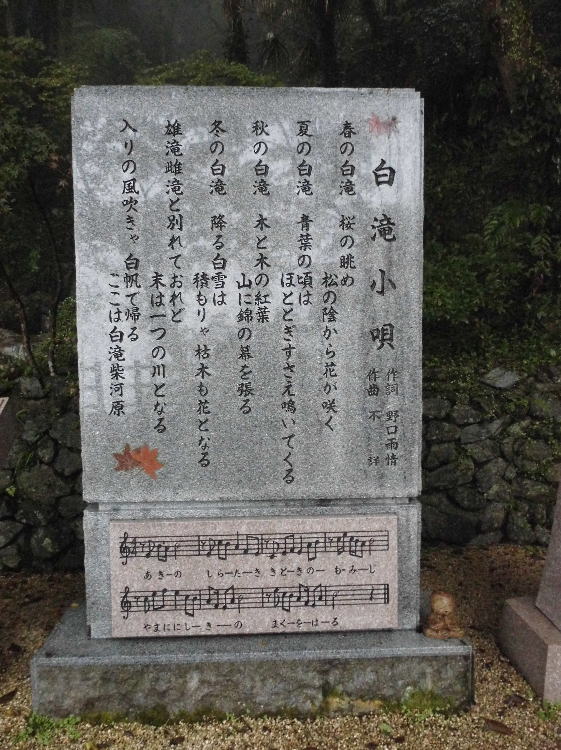 白滝小唄
作詞 野口雨情
作曲 不詳
春の白滝 桜の眺め
松の陰から花が咲く
夏の白滝 青葉の頃は
ほととぎすさえ鳴いてくる
秋の白滝 木と木の紅葉
山に錦の幕を張る
冬の白滝 降る白雪は
積もりゃ枯木も花となる
雄滝雌滝と別れておれど
末は一つの川となる
入りの風吹きゃ白帆で帰る
ここは白滝柴河原
あきーの しらーたーき きときのー もーみーじ
やまににしーきーーの まくーをーはーる